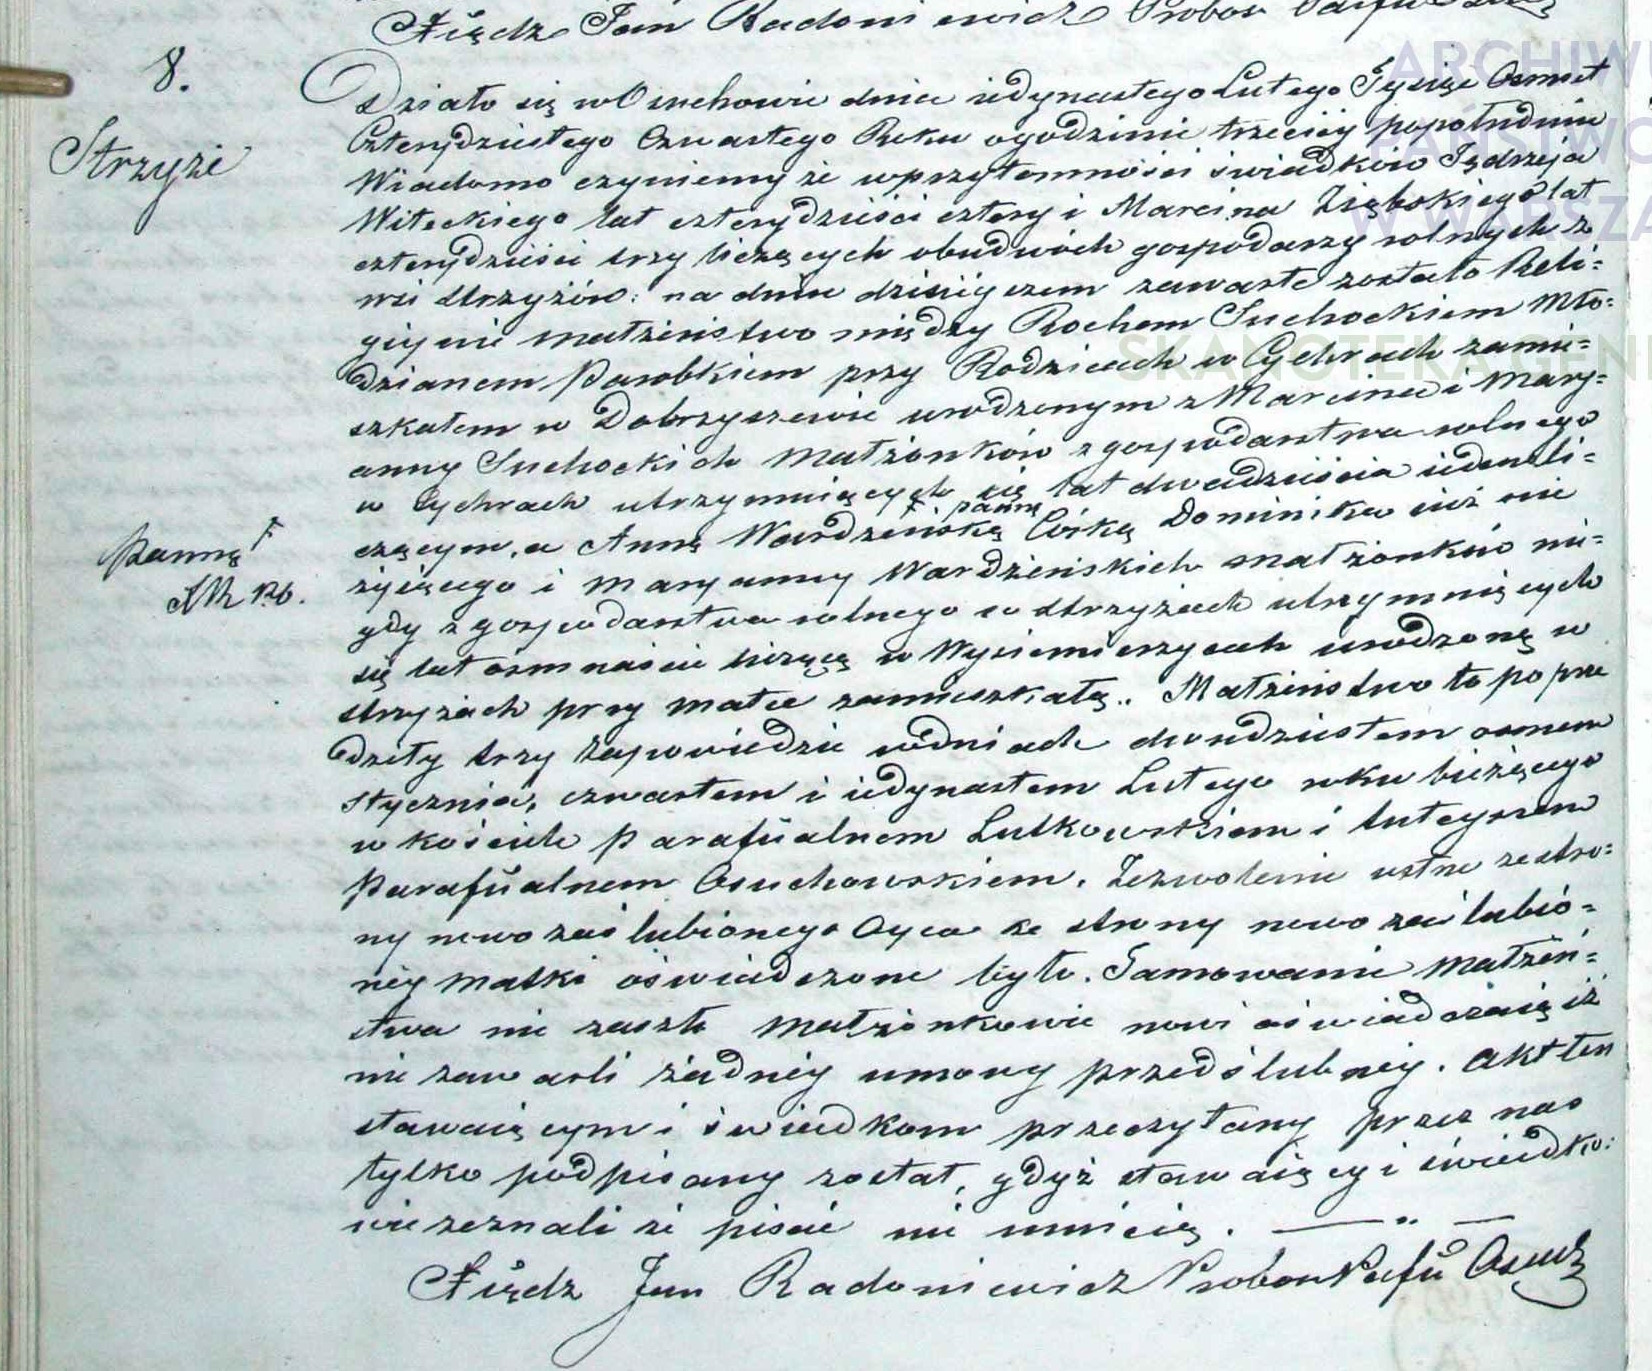 Xiądz Jan Radoniewicz Probor Parfii
8.
Strzyże
Działo się w Osuchowie dnia iedynastego Lutego Tysiąc Osmset
Czterydziestego Czwartego Roku ogodzinie trzeciey popołudniu
Wiadomo czyniemy że wprzytomności świadków Jędrzeja
Witeckiego lat czterydzieści cztery i Marcina Ziębskiego lat
czterydzieści trzy liczących obudwóch gospodarzy rolnych z
wsi Strzyżów: na dniu dzisieyszem zawarte zostało Reli=
giyne małżeństwo między Rochem Suchockiem Mło=
dzianem, Parobkiem przy Rodzicach w Cychrach zamie=
szkałem w Dobrzyszewie urodzonym z Marcina i Mary=
anny Suchockich Małżonków z gospodarstwa rolnego
w Cychrach utrzymuiących się lat dwadzieścia ieden li=
czącym, a Anną Wardzeńską panną Córką Dominika iuż nie
żyiącego i Maryanny Wardzieńskich małżonków ni=
gdy z gospodarstwa rolnego w Strzyżach utrzymuiących
się lat osmnaście liczącą w Wysiemierzycach urodzoną w
Strzyżach przy matce zamieszkałą.. Małżeństwo to poprze
dziły trzy zapowiedzie wdniach dwudziestem osmem
Stycznia, czwartem i iedynastem Lutego roku bieżącego
w kościele Parafiialnem Lutkowskiem i tuteyszem
Parafiialnem Osuchowskiem. Zezwolenie ustne ze stro=
ny nowo zaślubionego Oyca ze strony nowo zaślubio=
ney matki oświadczone było. Tamowanie Małżeń=
stwa nie zaszło Małżonkowie nowi oświadczaią iż
nie zawarli żadney umowy przedślubney. Akt ten
stawaiącym i świadkom przeczytany przez nas
tylko podpisany został, gdyż stawaiący i świadko:
wie zeznali że pisać nie umieią. — " —
Xiądz Jan Radoniewicz Probor Parfii Osuch
Panną
XJR Pro.
ARCHIWU
PAŃSTWO
W WARSZA
SKANOTEKA GENE